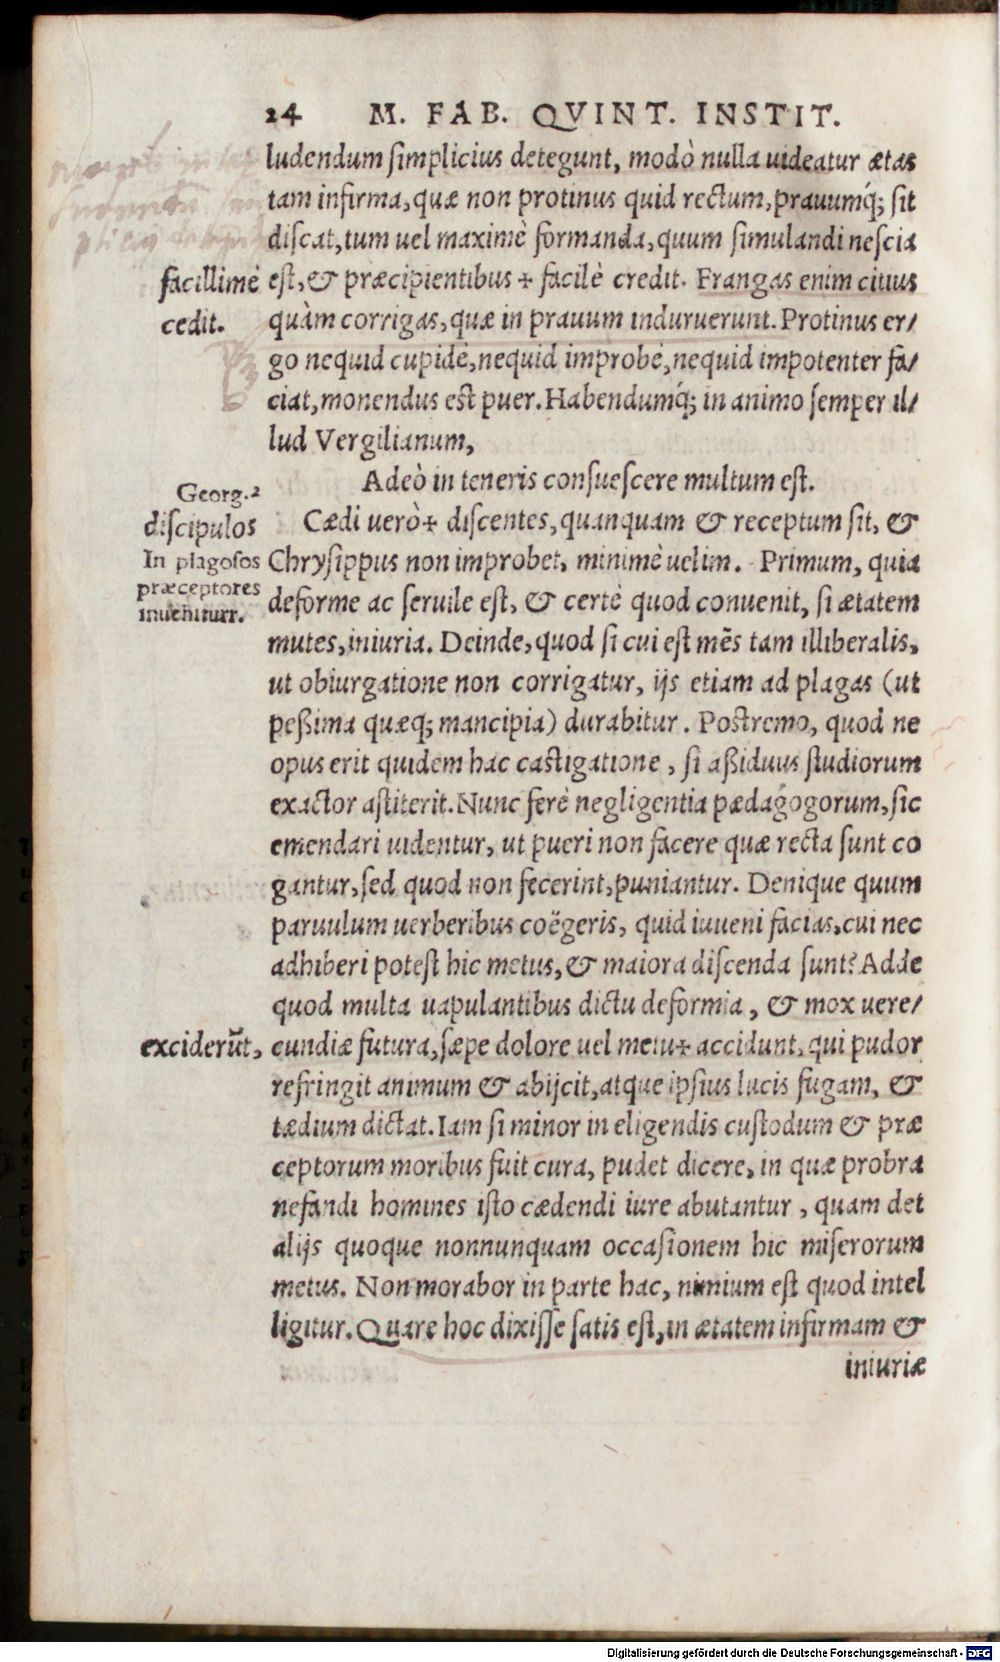 24 M. FAB. QVINT. INSTIT.
ludendum ſimplicius detegunt, modò nulla uideatur ætas
tam infirma, quæ non protinus quid rectum, prauumq́; ſit
diſcat, tum uel maximè formanda, quum ſimulandi neſcia
facillimè
eſt, & præcipientibus + facilè credit. Frangas enim citius
cedit.
quàm corrigas, quæ in prauum induruerunt. Protinus er/
go nequid cupidè, nequid improbè, nequid impotenter fa/
ciat, monendus est puer. Habendumq́; in animo ſemper il/
lud Vergilianum,
Adeò in teneris conſueſcere multum eſt.
Georg. 2
diſcipulos
Cædi uerò + diſcentes, quanquam & receptum ſit, &
In plagoſos
Chryſippus non improbet, minimè uelim. Primum, quia
præceptores
deforme ac ſeruile est, & certè quod conuenit, ſi ætatem
inuehiturr.
mutes, iniuria. Deinde, quod ſi cui eſt mẽs tam illiberalis,
ut obiurgatione non corrigatur, ijs etiam ad plagas (ut
peßima quæq; mancipia) durabitur. Postremo, quod ne
opus erit quidem hac castigatione, ſi aßiduus ſtudiorum
exactor aſtiterit. Nunc ferè negligentia pædagogorum, ſic
emendari uidentur, ut pueri non facere quæ recta ſunt co
gantur, ſed quod non fecerint, puniantur. Denique quum
paruulum uerberibus coëgeris, quid iuueni facias, cui nec
adhiberi poteſt hic metus, & maiora diſcenda ſunt? Adde
quod multa uapulantibus dictu deformia, & mox uere/
exciderũt,
cundiæ futura, ſæpe dolore uel metu + accidunt, qui pudor
refringit animum & abijcit, atque ipſius lucis fugam, &
tædium dictat. Iam ſi minor in eligendis cuſtodum & præ
ceptorum moribus fuit cura, pudet dicere, in quæ probra
nefandi homines iſto cædendi iure abutantur, quam det
alijs quoque nonnunquam occaſionem hic miſerorum
metus. Non morabor in parte hac, nimium eſt quod intel
ligitur. Quare hoc dixiſſe ſatis eſt, in ætatem infirmam &
iniuriæ
Digitalisierung gefördert durch die Deutsche Forschungsgemeinschaft - DFG